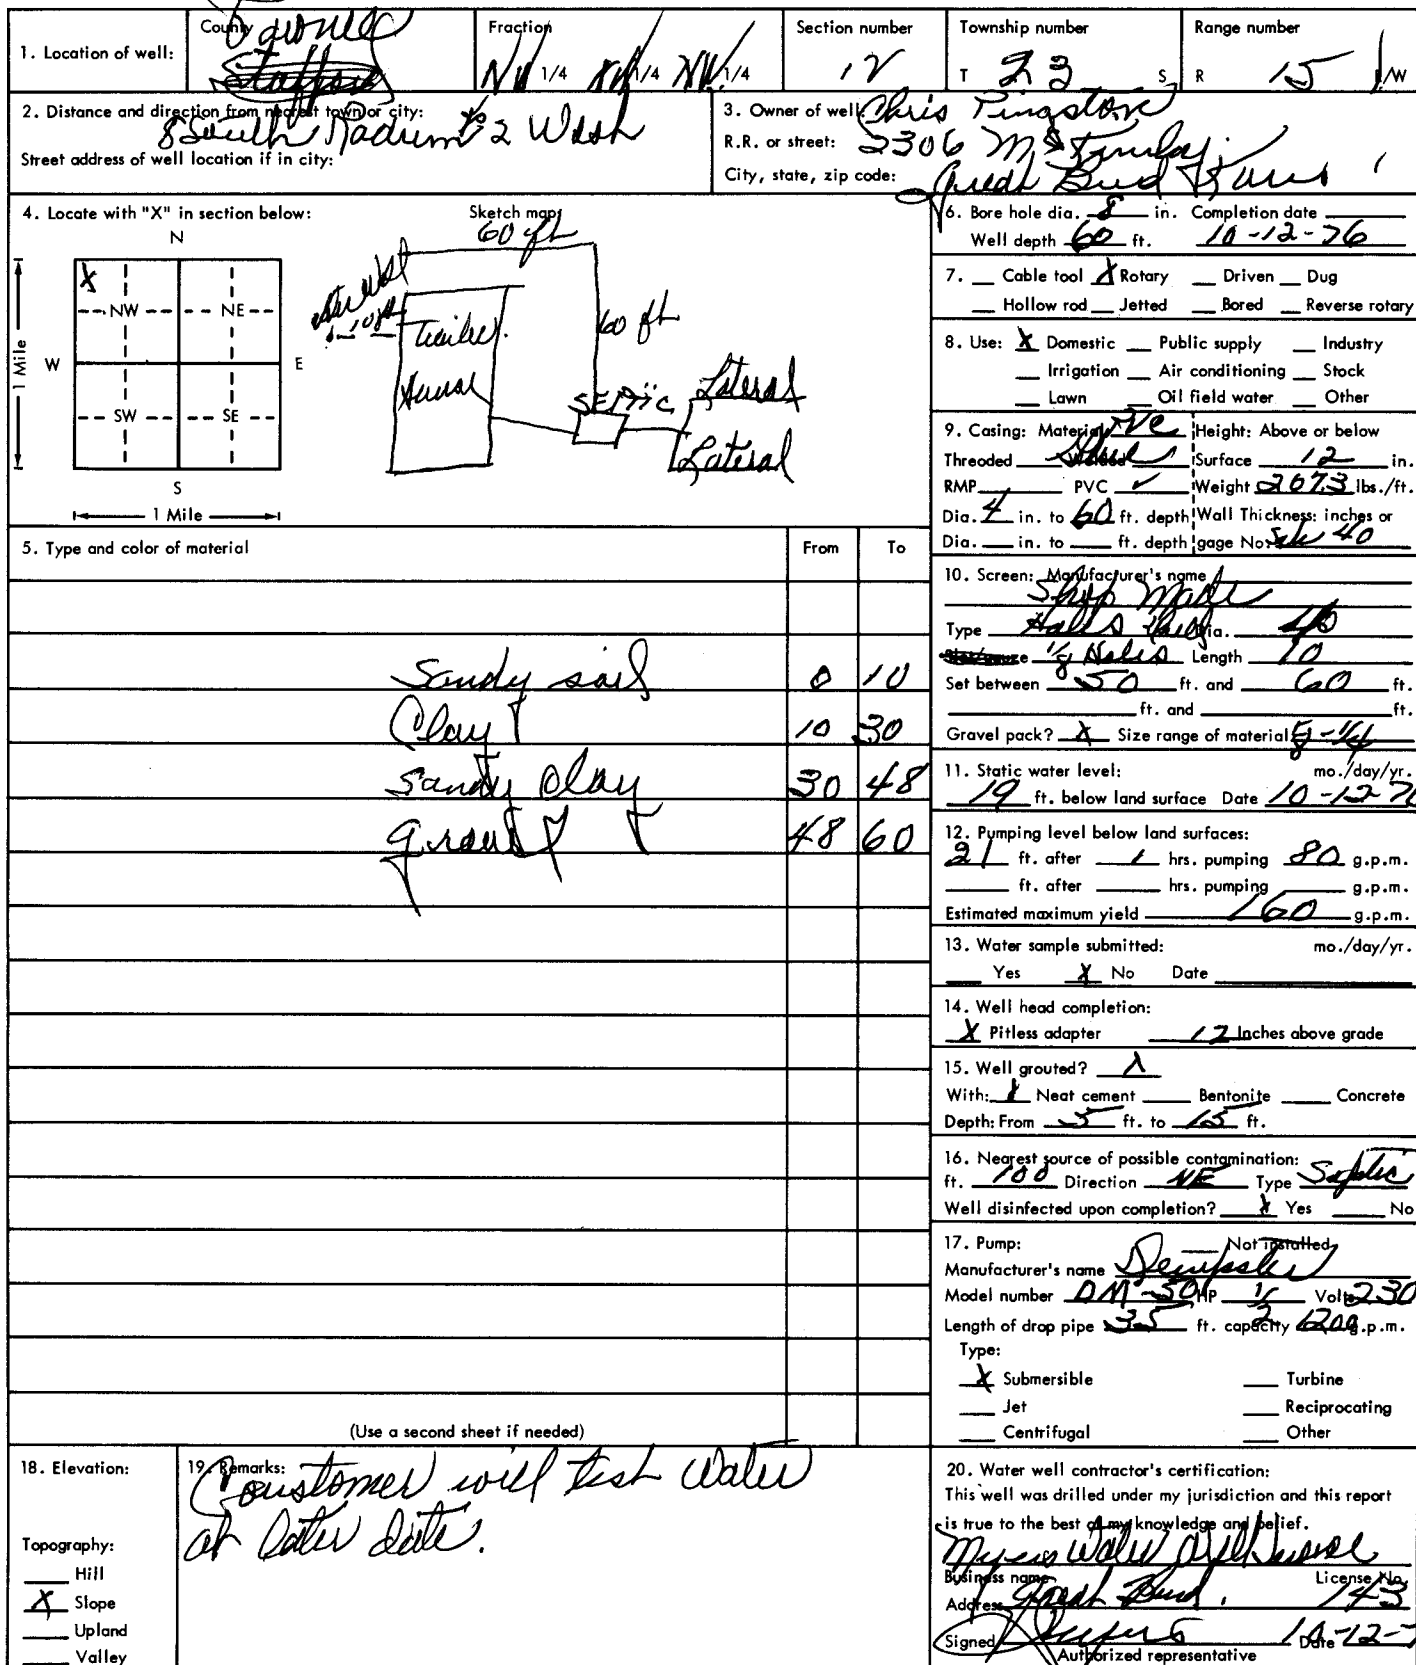 1. Location of well:
County
Pawnee
Stafford
Fraction
NW 1/4 NW 1/4 NW 1/4
Section number
12
Township number
T 23 S
Range number
R 15 /W
2. Distance and direction from nearest town or city:
8 South Radium 2 West
Street address of well location if in city:
3. Owner of well: Chris Pingston
R.R. or street: 2306 McKinley
City, state, zip code: Great Bend Kans
4. Locate with "X" in section below:
N
X
NW NE
W E
SW SE
S
1 Mile
1 Mile
Sketch map:
60 ft
60 ft
Trailer
House
SEPTIC
Lateral
Lateral
5. Type and color of material From To
Sandy soil 0 10
Clay 10 30
Sandy Clay 30 48
gravel 48 60
(Use a second sheet if needed)
6. Bore hole dia. 8 in. Completion date
Well depth 60 ft. 10-12-76
7. Cable tool X Rotary Driven Dug
Hollow rod Jetted Bored Reverse rotary
8. Use: X Domestic Public supply Industry
Irrigation Air conditioning Stock
Lawn Oil field water Other
9. Casing: Material PVC Height: Above or below
Threaded Welded Surface 12 in.
RMP PVC ✓ Weight 2673 lbs./ft.
Dia. 4 in. to 60 ft. depth Wall Thickness: inches or
Dia. in. to ft. depth gage No. Sch 40
10. Screen: Manufacturer's name
Shop Made
Type Holes Dia.
1/8 Holes Length 10
Set between 50 ft. and 60 ft.
ft. and ft.
Gravel pack? X Size range of material
11. Static water level: mo./day/yr.
19 ft. below land surface Date 10-12-76
12. Pumping level below land surfaces:
21 ft. after 1 hrs. pumping 80 g.p.m.
ft. after hrs. pumping g.p.m.
Estimated maximum yield 160 g.p.m.
13. Water sample submitted: mo./day/yr.
Yes X No Date
14. Well head completion:
X Pitless adapter 12 Inches above grade
15. Well grouted? X
With: X Neat cement Bentonite Concrete
Depth: From 5 ft. to 15 ft.
16. Nearest source of possible contamination:
ft. 100 Direction NE Type Septic
Well disinfected upon completion? X Yes No
17. Pump: Not installed
Manufacturer's name Dempster
Model number DM-50 HP 1/2 Volts 230
Length of drop pipe 35 ft. capacity 1200 g.p.m.
Type:
X Submersible Turbine
Jet Reciprocating
Centrifugal Other
18. Elevation:
Topography:
Hill
X Slope
Upland
Valley
19. Remarks: Coustomer will test Water
at later date.
20. Water well contractor's certification:
This well was drilled under my jurisdiction and this report
is true to the best of my knowledge and belief.
Myers Water Well Service
Business name License No.
Address Great Bend. 143
Signed Date 10-12-7
Authorized representative